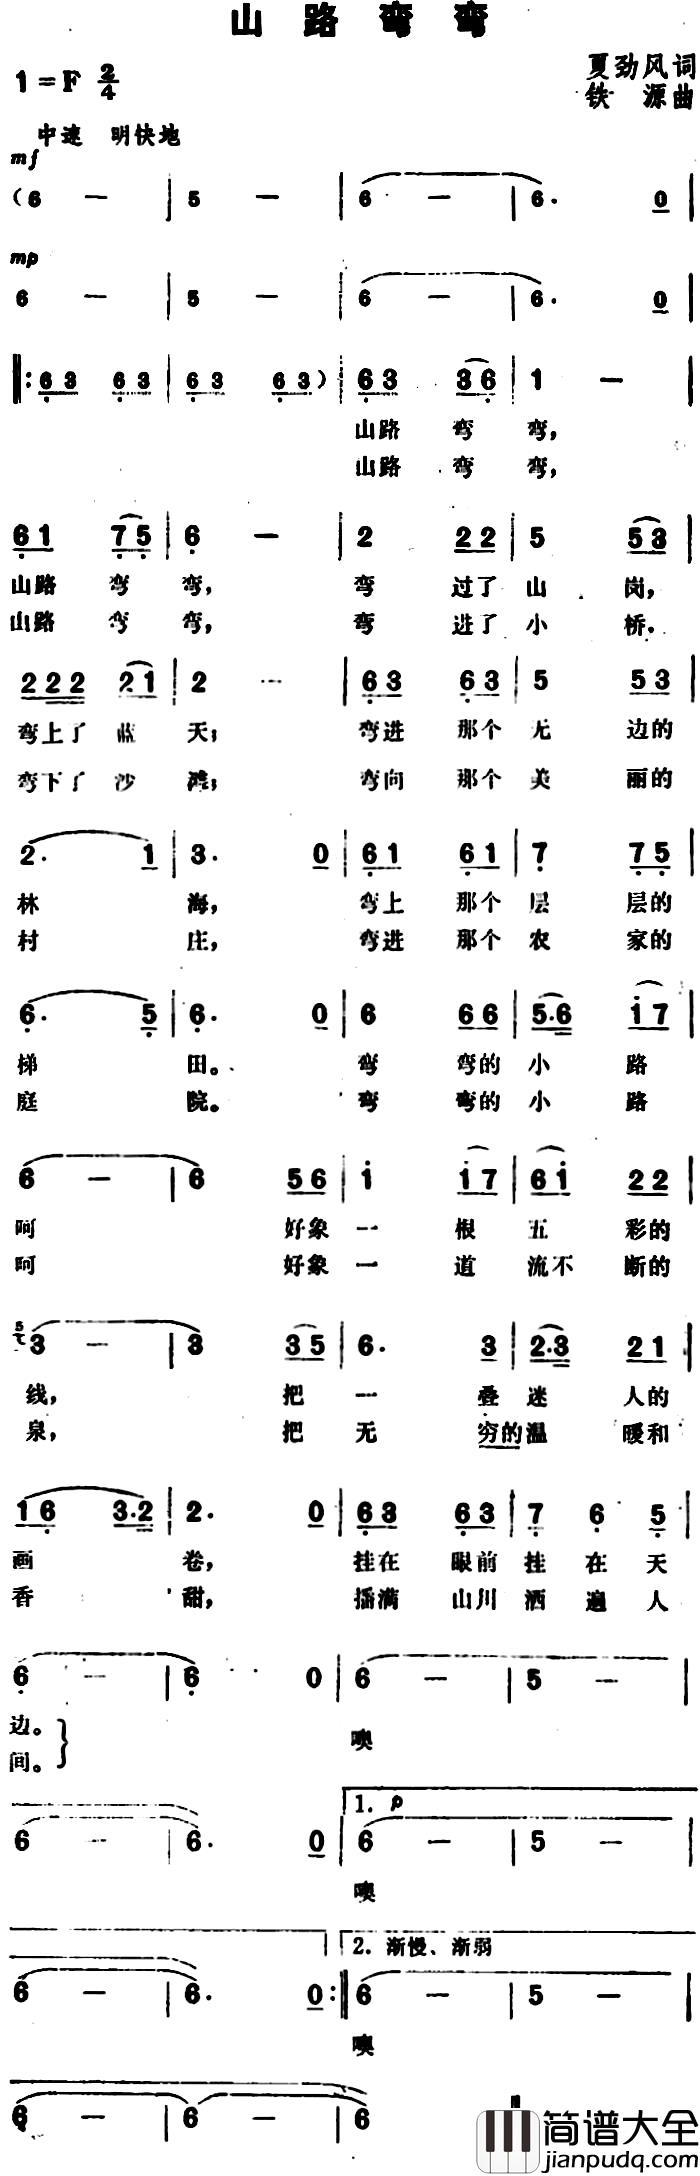 山路弯弯
1=F 2/4
夏劲风词
铁 源曲
中速 明快地
mf
(6 — | 5 — | 6 — | 6. 0 |
mp
6 — | 5 — | 6 — | 6. 0 |
|: 63 63 | 63 63) | 63 36 | 1 — |
山路 弯 弯,
山路 弯 弯,
61 75 | 6 — | 2 22 | 5 53 |
山路 弯 弯, 弯 过了 山 岗,
山路 弯 弯, 弯 进了 小 桥,
222 21 | 2 — | 63 63 | 5 53 |
弯上了 蓝 天; 弯进 那个 无 边的
弯下了 沙 滩; 弯向 那个 美 丽的
2. 1 | 3. 0 | 61 61 | 7 75 |
林 海, 弯上 那个 层 层的
村 庄, 弯进 那个 农 家的
6. 5 | 6. 0 | 6 66 | 5.6 i7 |
梯 田。 弯 弯的 小 路
庭 院。 弯 弯的 小 路
6 — | 6 56 | i i7 | 6i 22 |
呵 好象 一 根 五 彩的
呵 好象 一 道 流不 断的
5 3 — | 3 35 | 6. 3 | 2.3 21 |
线, 把 一 叠 迷 人的
泉, 把 无 穷的 温 暖和
16 3.2 | 2. 0 | 63 63 | 7 6 5 |
画 卷, 挂在 眼前 挂 在 天
香 甜, 播满 山川 洒 遍 人
6 — | 6 0 | 6 — | 5 — |
边。
间。} 噢
6 — | 6. 0 | 1. p 6 — | 5 — |
噢
6 — | 6. 0 :| 2. 渐慢、渐弱 6 — | 5 — |
噢
6 — | 6 — | 6
简谱大全
jianpudq.com